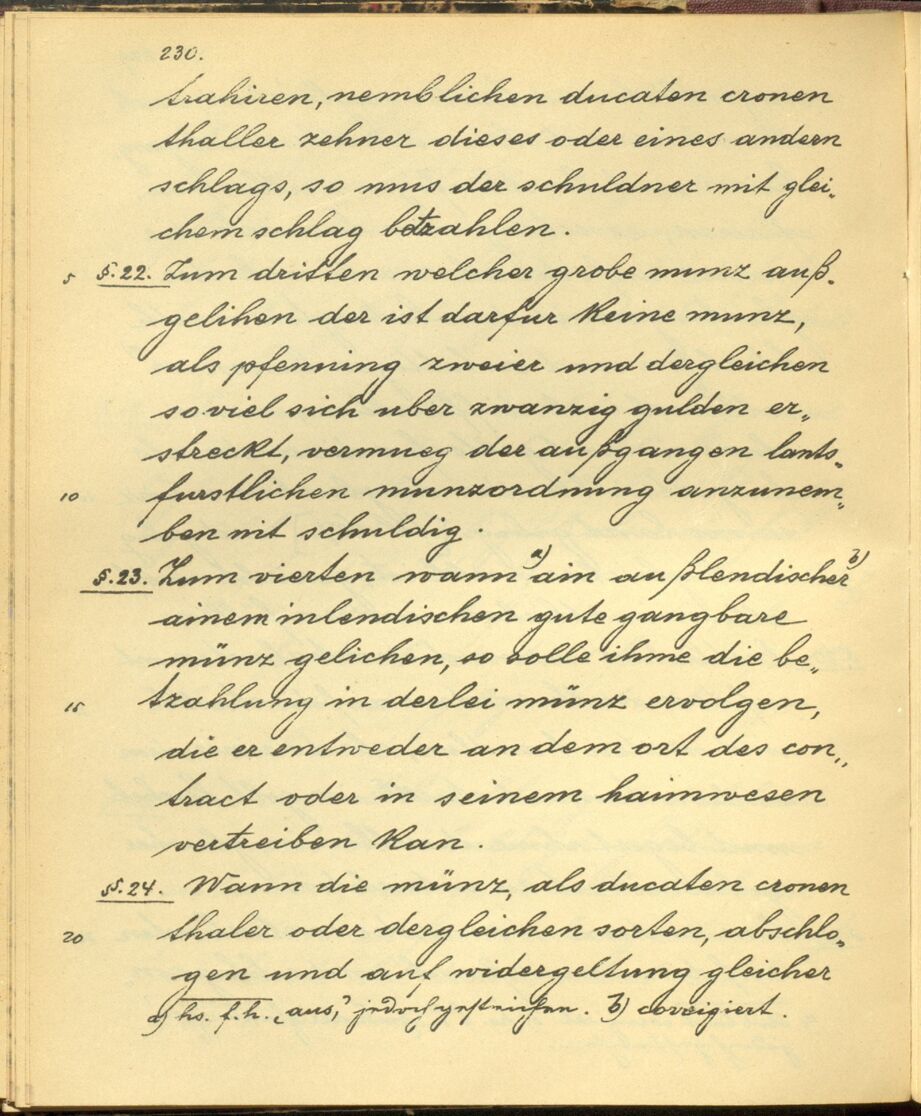 230.
trahiren, nemblichen ducaten cronen
thaller zehner dieses oder eines andern
schlags, so mus der schuldner mit glei„
chem schlag betzahlen.
5 §.22. Zum dritten welcher grobe munz auß„
gelihen der ist darfur keine munz,
als pfenning zweier und dergleichen
soviel sich uber zwanzig gulden er„
streckt, vermueg der außgangen lants„
10 furstlichen munzordnung anzunem„
ben nit schuldig.
§.23. Zum vierten wann a) ain außlendischer b)
ainem inlendischen gute gangbare
münz gelichen, so solle ihme die be„
15 tzahlung in derlei münz ervolgen,
die er entweder an dem ort des con„
tract oder in seinem haimwesen
vertreiben kan.
§.24. Wann die münz, als ducaten cronen
20 thaler oder dergleichen sorten, abschlo„
gen und auf widergeltung gleicher
a) hs. f.h. „aus," jedoch gestrichen. b) corrigiert.